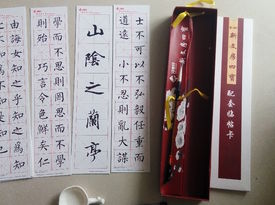 新文房四寶
配套临帖卡
士不可以弘毅任重而
道遠 小不忍則亂大謀
山陰之蘭亭
學而不思則罔思而不學
則殆 巧言令色鮮矣仁
由誨女知之乎知之為知